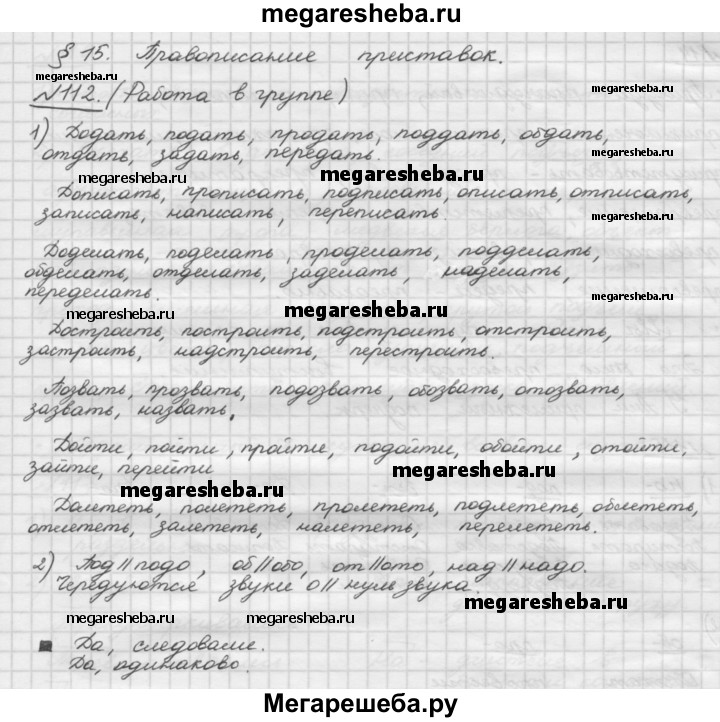 megaresheba.ru
§ 15. Правописание приставок.
megaresheba.ru
№112. (Работа в группе)
megaresheba.ru
1) Додать, подать, продать, поддать, обдать,
отдать, задать, передать.
megaresheba.ru
megaresheba.ru
megaresheba.ru
Дописать, прописать, подписать, описать, отписать,
записать, написать, переписать
megaresheba.ru
Доделать, поделать, проделать, подделать,
обделать, отделать, заделать, наделать,
переделать.
megaresheba.ru
megaresheba.ru
megaresheba.ru
Достроить, построить, подстроить, отстроить,
застроить, надстроить, перестроить.
Позвать, прозвать, подозвать, обозвать, отозвать,
зазвать, назвать.
megaresheba.ru
Дойти, пойти, пройти, подойти, обойти, отойти,
зайти, перейти
megaresheba.ru
megaresheba.ru
Долететь, полететь, пролететь, подлететь, облететь,
отлететь, залететь, налететь, перелететь.
2) Под//подо, об//обо, от//ото, над//надо.
Чередуются звуки о// нуль звука.
megaresheba.ru
megaresheba.ru
Да, следовали.
Да, одинаково.
Мегарешеба.ру